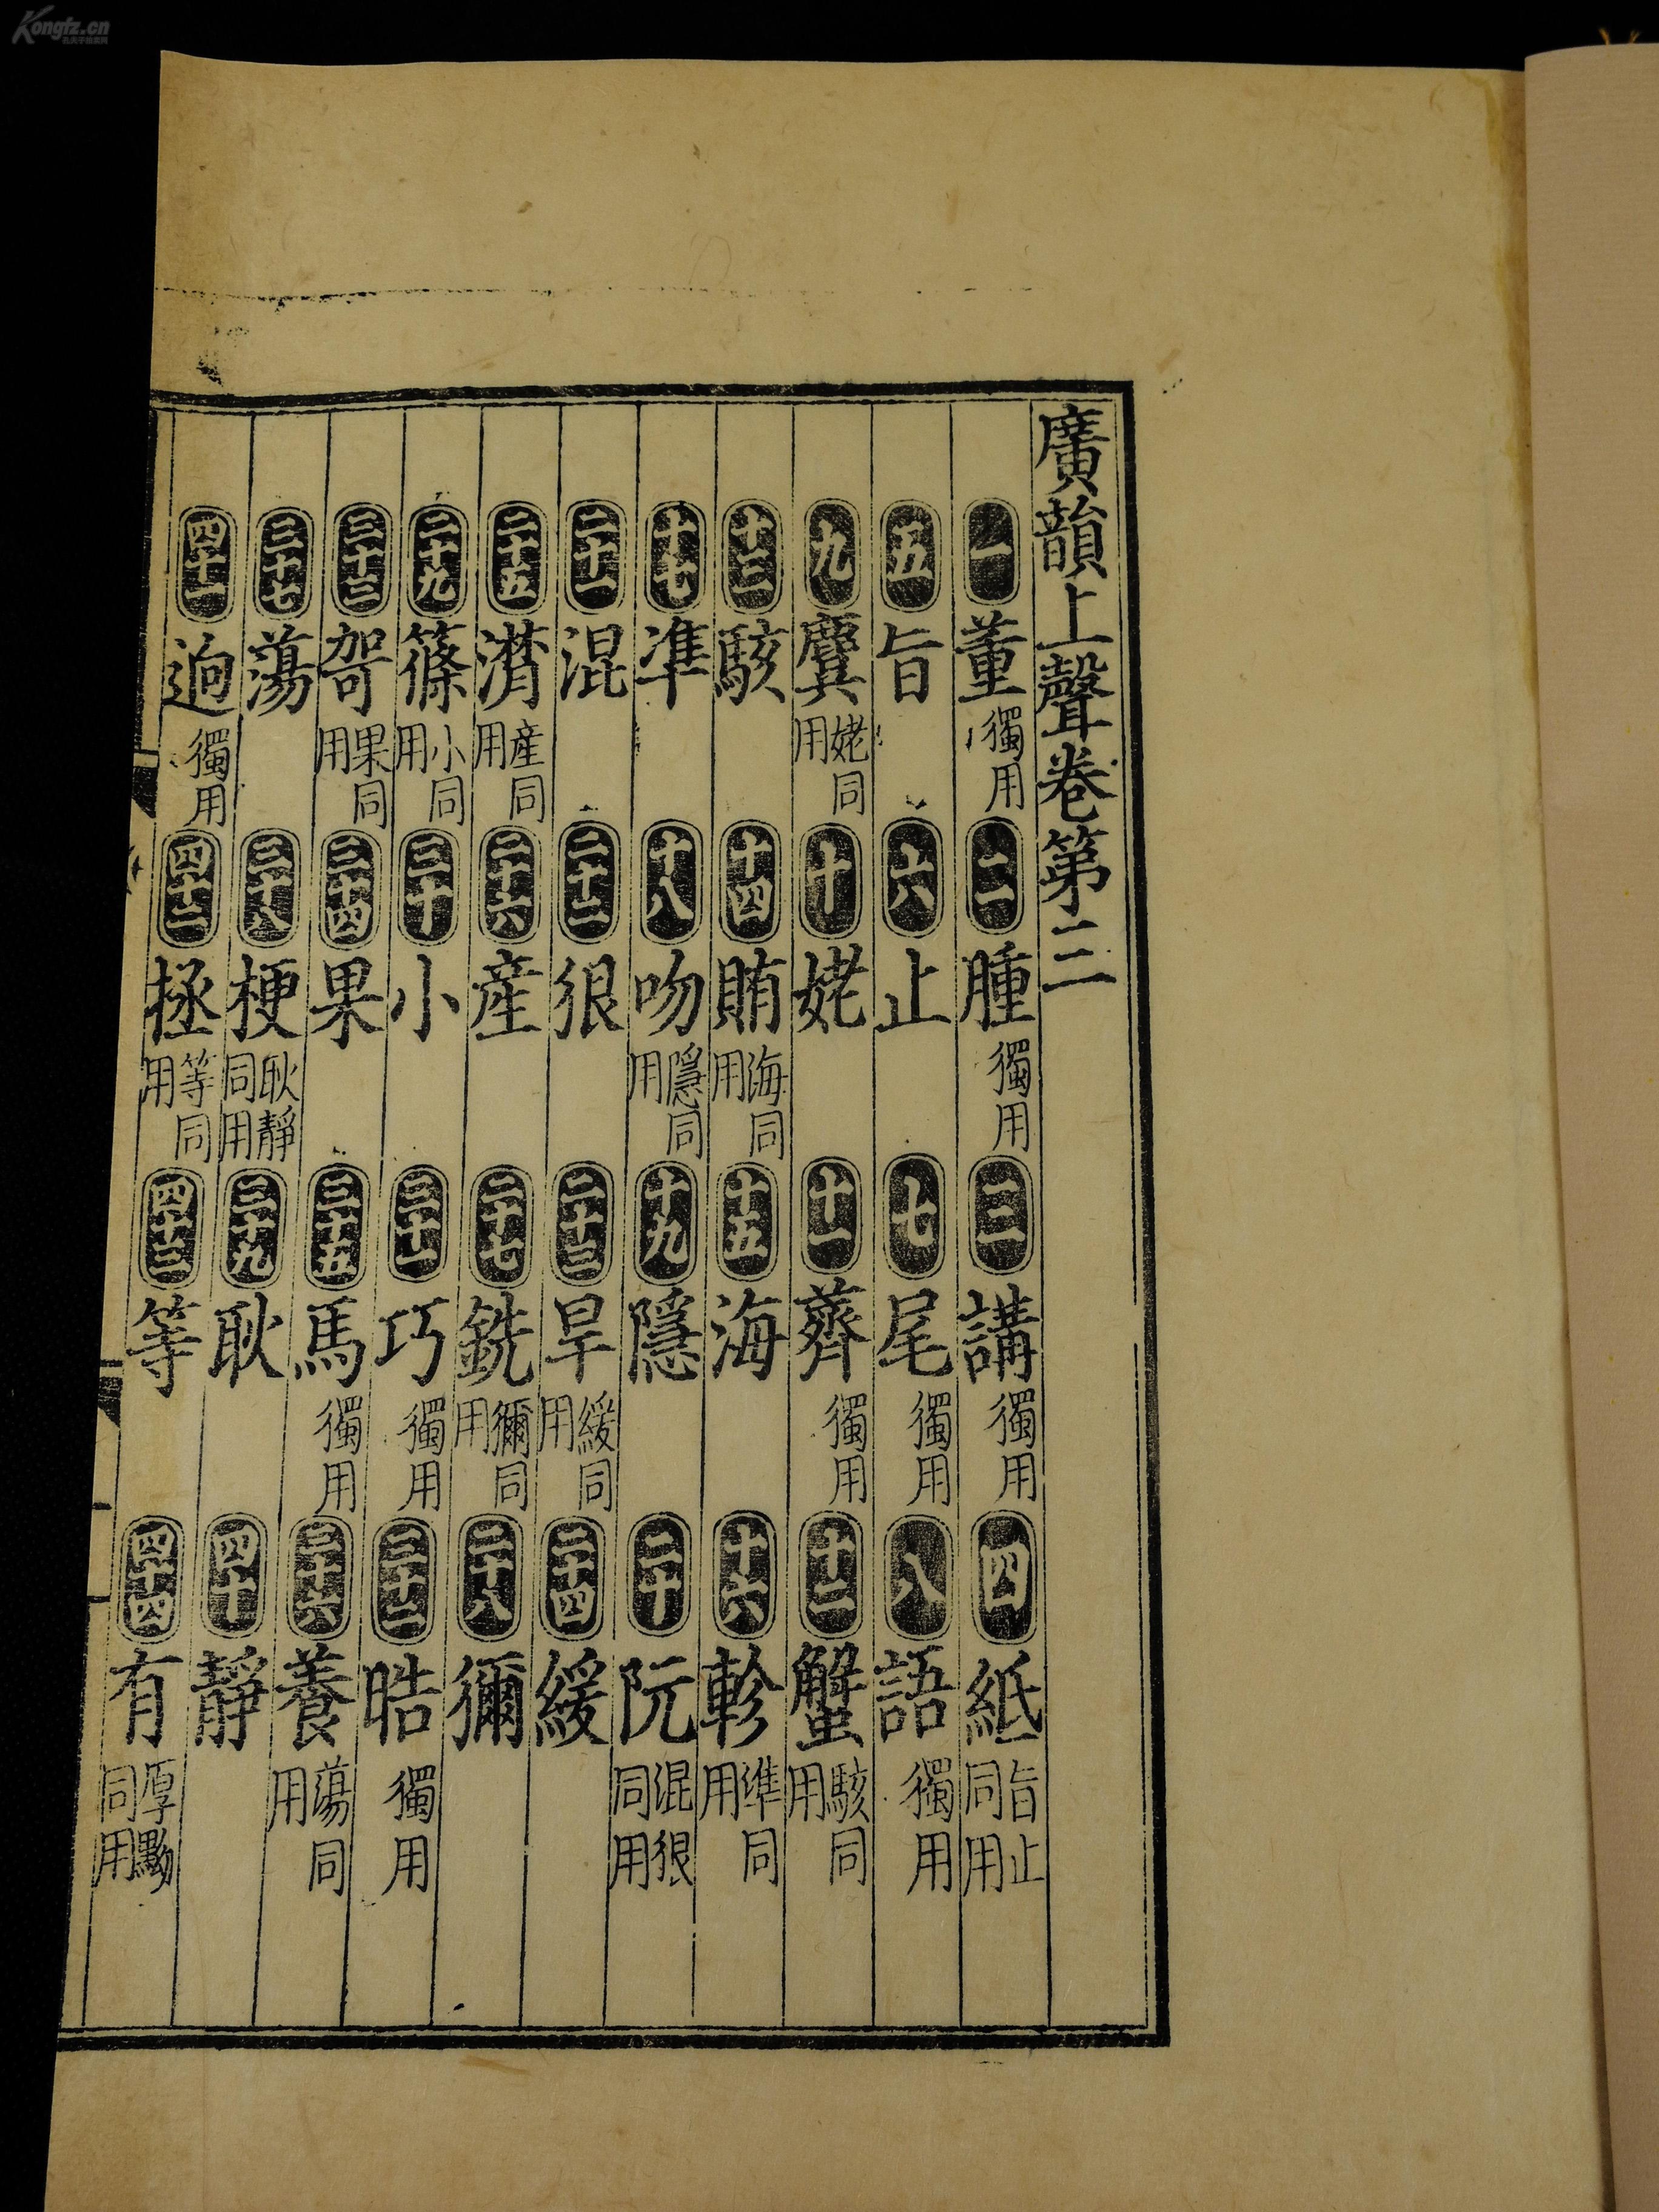 廣韻上聲卷第三
一董獨用 二腫獨用 三講獨用 四紙旨止同用
五旨 六止 七尾獨用 八語獨用
九麌姥同用 十姥 十一薺獨用 十二蟹駭同用
十三駭 十四賄海同用 十五海 十六軫準同用
十七凖 十八吻隱同用 十九隱 二十阮混很同用
二十一混 二十二很 二十三旱緩同用 二十四緩
二十五潸産同用 二十六産 二十七銑獮同用 二十八獮
二十九篠小同用 三十小 三十一巧獨用 三十二晧獨用
三十三哿果同用 三十四果 三十五馬獨用 三十六養蕩同用
三十七蕩 三十八梗耿靜同用 三十九耿 四十靜
四十一逈獨用 四十二拯等同用 四十三等 四十四有厚黝同用
Kongfz.cn